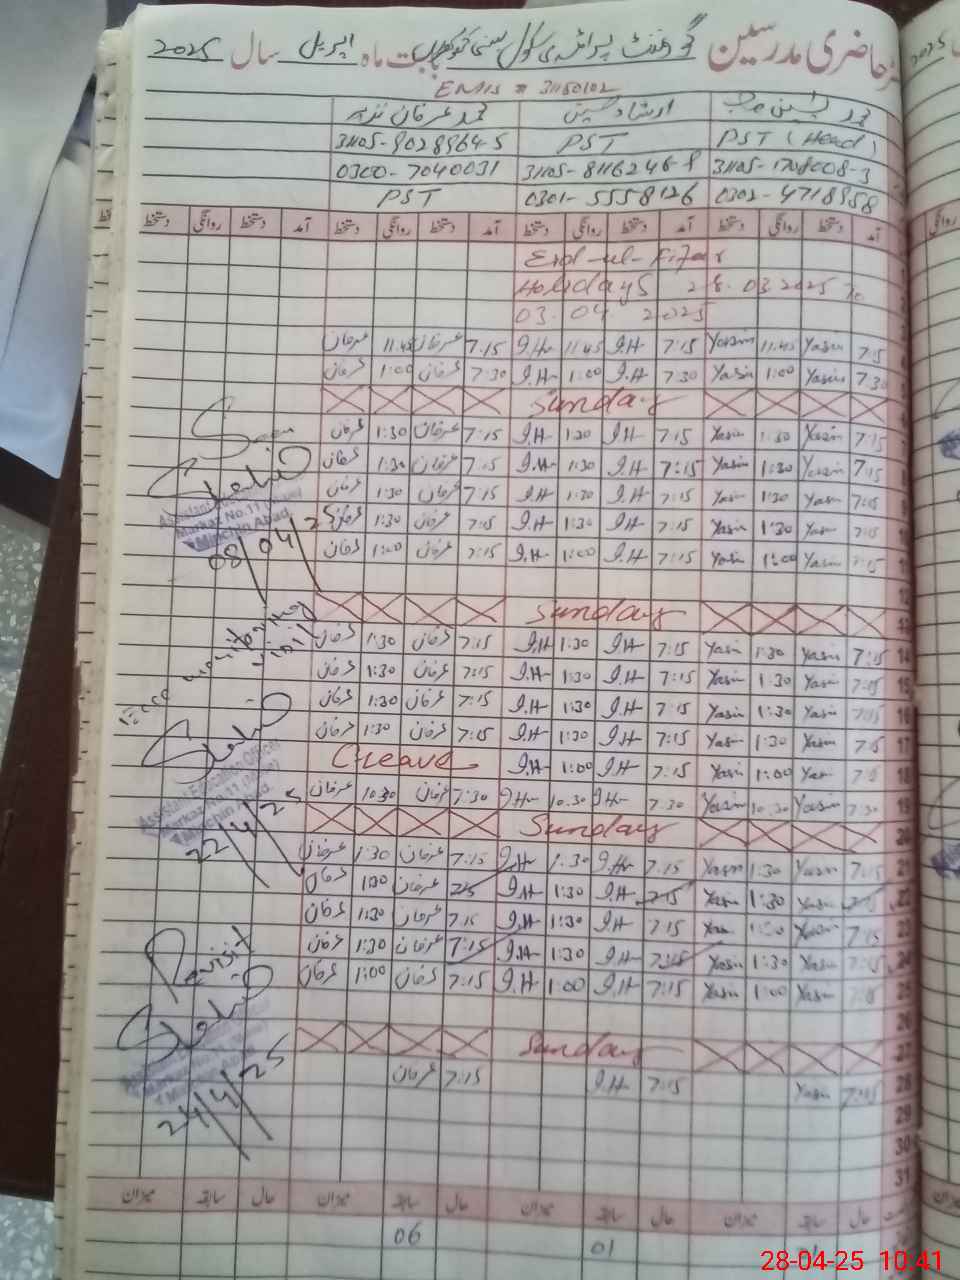 حاضری مدرسین گورنمنٹ پرائمری سکول بابت ماہ اپریل سال 2025
EMIS # 31150102
محمد یٰسین ارشاد حسین محمد عرفان نذیر
PST (Head) PST 31105-9028964-5
31105-1708008-3 31105-8116246-8 0300-7040031
0302-4718958 0301-5558126 PST
آمد دستخط روانگی دستخط آمد دستخط روانگی دستخط آمد دستخط روانگی دستخط آمد دستخط روانگی دستخط
Eid-ul-Fitar
Holidays 28.03.2025 To
03.04.2025
7:15 Yasin 11.45 Yasin 7:15 I.H 11.45 I.H 7.15 عرفان 11.45 عرفان
7.30 Yasin 1:00 Yasin 7.30 I.H 1:00 I.H 7:30 عرفان 1:00 عرفان
Sunday
7:15 Yasin 1:30 Yasin 7:15 I.H 1:30 I.H 7:15 عرفان 1:30 عرفان
7:15 Yasin 1:30 Yasin 7:15 I.H 1:30 I.H 7:15 عرفان 1:30 عرفان
7:15 Yasin 1:30 Yasin 7:15 I.H 1:30 I.H 7:15 عرفان 1:30 عرفان
7:15 Yasin 1:30 Yasin 7:15 I.H 1:30 I.H 7:15 عرفان 1:30 عرفان
7:15 Yasin 1:00 Yasin 7:15 I.H 1:00 I.H 7:15 عرفان 1:00 عرفان
12
Sunday 13
14 7:15 Yasin 1:30 Yasin 7:15 I.H 1:30 I.H 7:15 عرفان 1:30 عرفان
15 7:15 Yasin 1:30 Yasin 7:15 I.H 1:30 I.H 7:15 عرفان 1:30 عرفان
16 7:15 Yasin 1:30 Yasin 7:15 I.H 1:30 I.H 7:15 عرفان 1:30 عرفان
17 7:15 Yasin 1:30 Yasin 7:15 I.H 1:30 I.H 7:15 عرفان 1:30 عرفان
18 7:15 Yasin 1:00 Yasin 7:15 I.H 1:00 I.H Cleave
19 7:30 Yasin 10:30 Yasin 7.30 I.H 10.30 I.H 7:30 عرفان 10:30 عرفان
20 Sunday
21 7:15 Yasin 1:30 Yasin 7.15 I.H 1:30 I.H 7.15 عرفان 1:30 عرفان
22 7:15 Yasin 1:30 Yasin 7:15 I.H 1:30 I.H 7:15 عرفان 1:30 عرفان
23 7:15 Yasin 1:30 Yasin 7:15 I.H 1:30 I.H 7.15 عرفان 1:30 عرفان
24 7:15 Yasin 1:30 Yasin 7:15 I.H 1:30 I.H 7:15 عرفان 1:30 عرفان
25 7:15 Yasin 1:00 Yasin 7:15 I.H 1:00 I.H 7:15 عرفان 1:00 عرفان
26
27 Sunday
28 7:15 Yasin 7:15 I.H 7:15 عرفان
29
30
31
حال سابقہ میزان حال سابقہ میزان حال سابقہ میزان حال سابقہ میزان
01 06
Markaz No.11
Minchin Abad.
08/04/25
monitoring
visit
Assistant Education Officer
Markaz No.11 (Male)
Minchin Abad.
22/4/25
Revisit
24/4/25
28-04-25 10:41